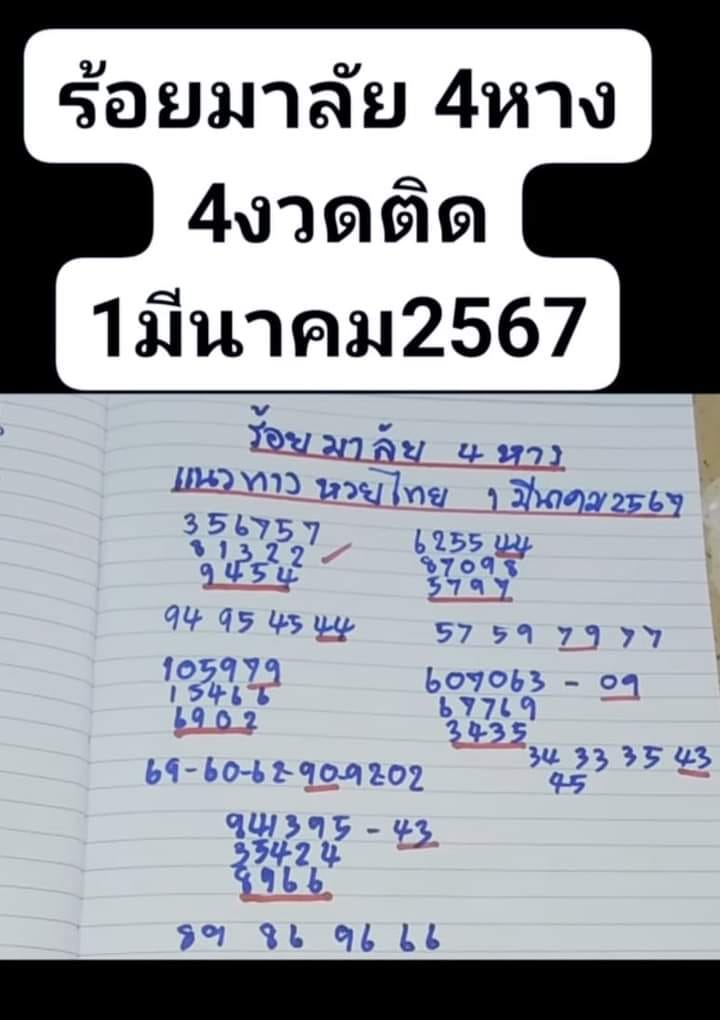 ร้อยมาลัย 4หาง
4งวดติด
1มีนาคม2567
ร้อยมาลัย 4 หาง
แนวทางหวยไทย 1 มีนาคม 2567
356757
81322
9454
94 95 45 44
625544
87098
5797
57 59 79 77
105979
15466
6902
69-60-62-90-9202
607063 - 09
67769
3435
34 33 35 43
45
941395 - 43
35424
8966
89 86 96 66